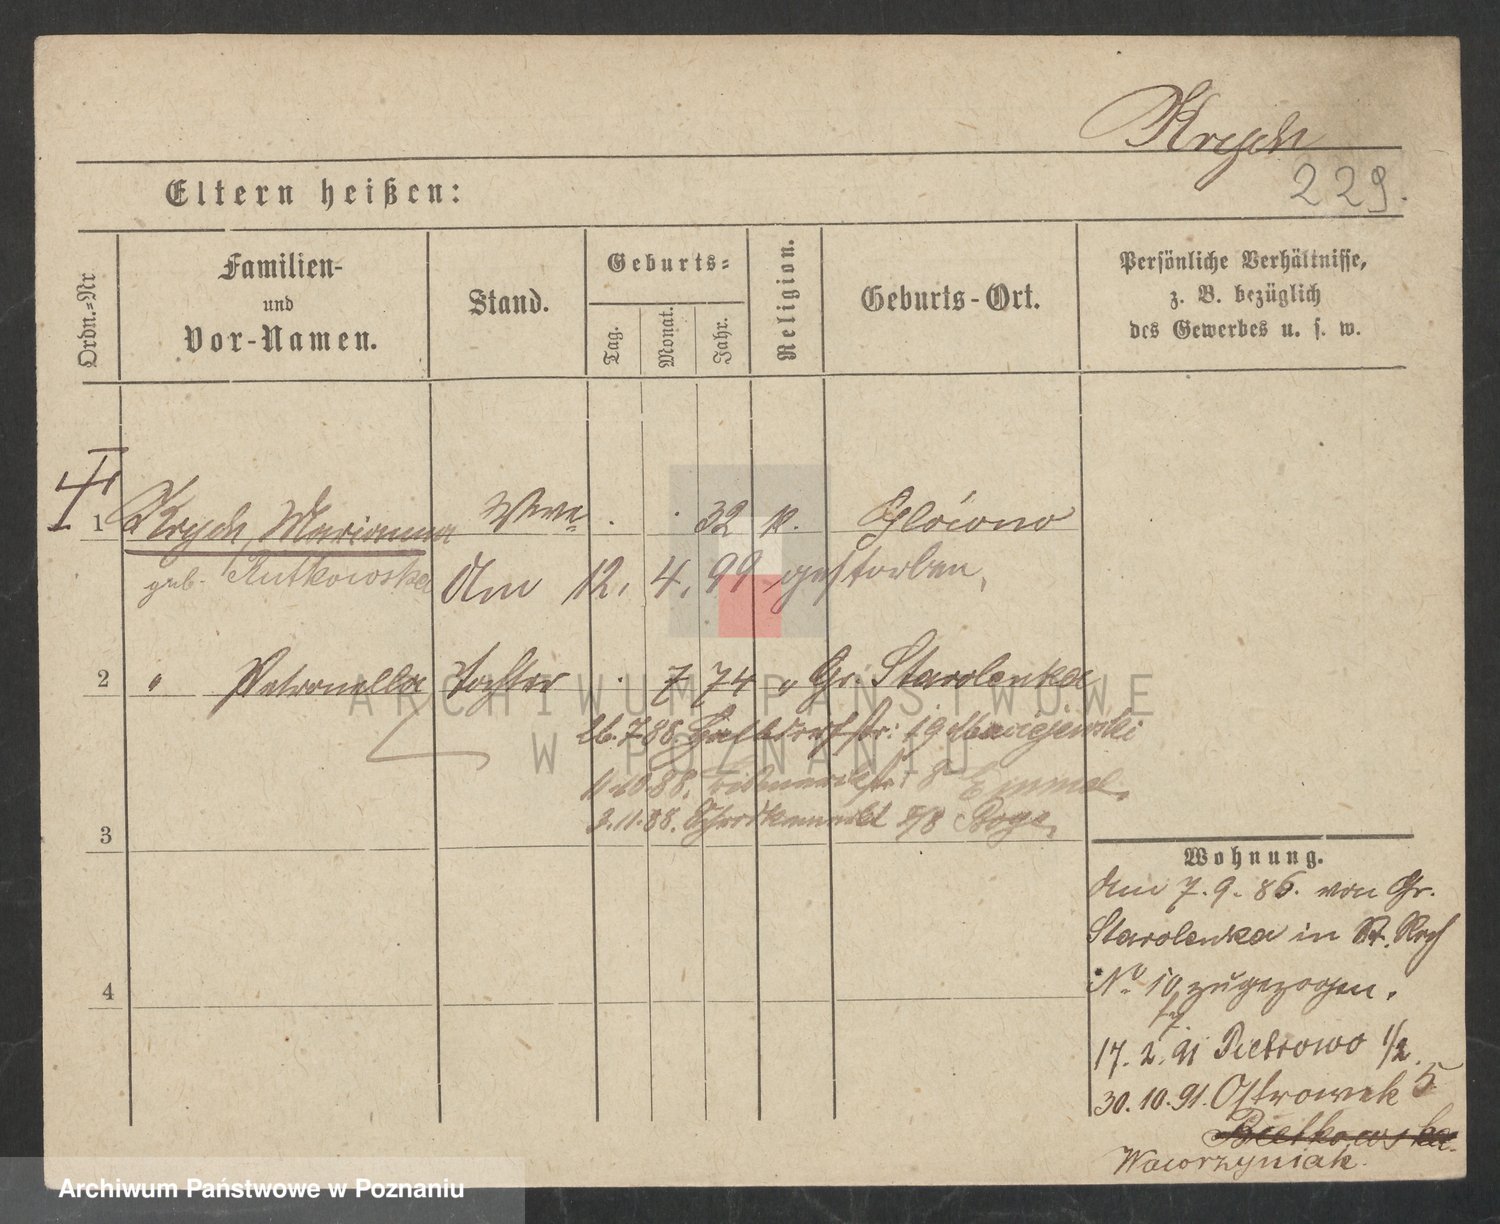 Krych
229.
Eltern heißen:
Ordn.-Nr
Familien-
und
Vor-Namen.
Stand.
Geburts-
Tag.
Monat.
Jahr.
Religion.
Geburts-Ort.
Persönliche Verhältnisse,
z. B. bezüglich
des Gewerbes u. s. w.
1 Krych, Marianna Wwe . . 32 k. Glówno
geb. Rutkowska Am 12. 4. 99 gestorben.
2 " Petronella Tochter . 7 74 " Gr. Starolenka
26.7.88. str: 19 Maciejewski
11.10.88. 8
3.11.88. 7/8
3
Wohnung.
Am 7. 9. 86. von Gr.
Starolenka in
No 10 zugezogen.
4
17. 2. 91 Pietrowo 1/2
30. 10. 91. Ostrowek 5
Wawrzyniak.
ARCHIWUM PAŃSTWOWE
W POZNANIU
Archiwum Państwowe w Poznaniu